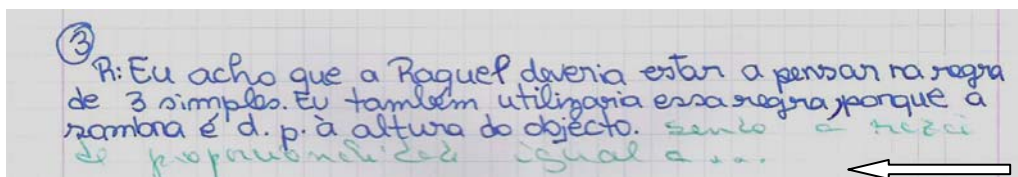 3
R: Eu acho que a Raquel deveria estar a pensar na regra
de 3 simples. Eu também utilizaria essa regra, porque a
sombra é d. p. à altura do objecto. sendo a razão
de proporcionalidade igual a ...